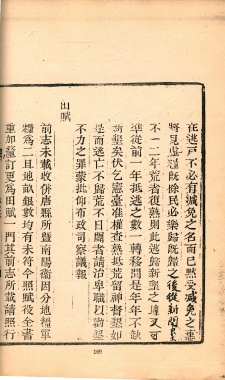 在逃戶不必有減免之名而已默受減免之惠
將見虛糧旣除民必樂歸所歸之後復新闢
不一二年荒者復熟則此逃歸新墾之產又可
準從前一年抵逃之數一轉移間是年年不缺
新墾矣伏乞憲臺准檄查熟抵荒留神督墾如
是而逃亡不歸荒不日闢者請治卑職以勸墾
不力之罪蒙批仰布政司察議報
田賦
前志未載收併唐縣所暨南陽衞因分地糧軍
糧爲二且地畝銀數均有未符今照賦役全書
重加釐訂更爲田賦一門其前志所載請照行
169